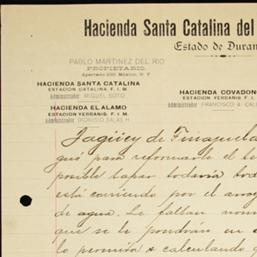 Hacienda Santa Catalina del
Estado de Duran
PABLO MARTINEZ DEL RIO
PROPIETARIO.
Apartado México, D. F.
HACIENDA SANTA CATALINA
ESTACION CATALINA, F. I. M.
Administrador MIGUEL SOTO.
HACIENDA EL ALAMO
ESTACION YERBANIS, F. I. M.
Administrador DIONISIO SALAS
HACIENDA COVADON
ESTACION YERBANIS F. I.
Administrador FRANCISCO A.
Tagüey de Tinajuela
qui para reformarle el
posible tapar todavia tod
está corriendo por el arroy
de agua. Le faltan
que se le pondrán en
lo permita & calculando q